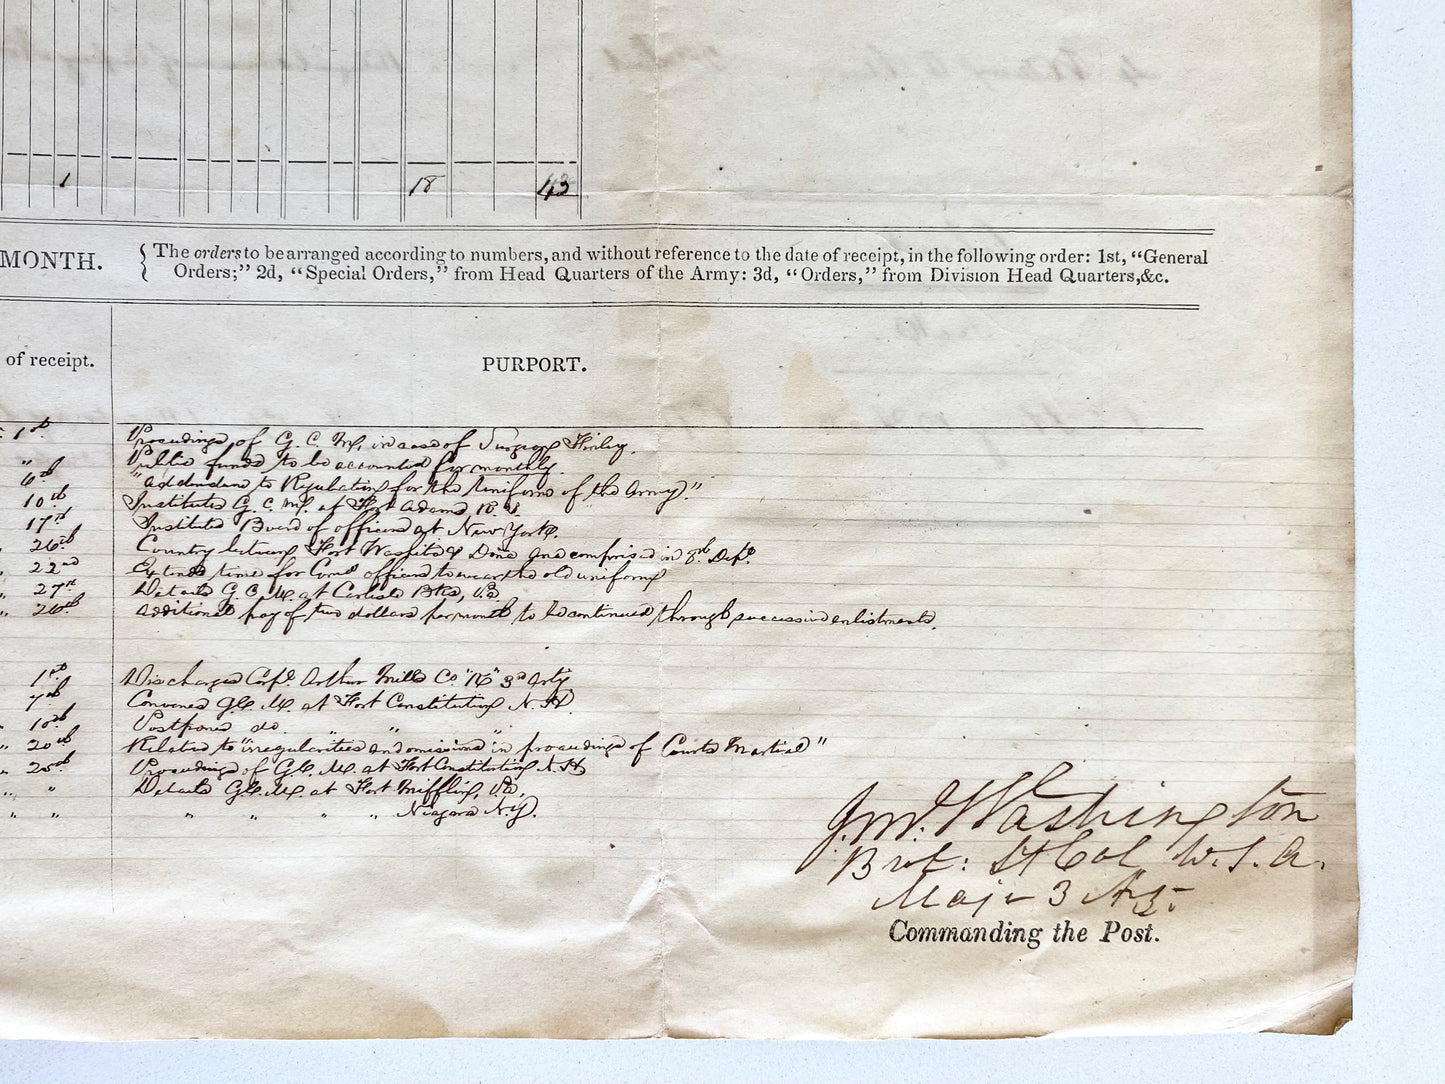 1 18 43
MONTH. { The orders to be arranged according to numbers, and without reference to the date of receipt, in the following order: 1st, “General
Orders;” 2d, “Special Orders,” from Head Quarters of the Army: 3d, “Orders,” from Division Head Quarters, &c.
of receipt. PURPORT.
1st Proceedings of G. C. M. in case of Surgeon Finley.
" Public funds to be accounted for monthly.
6th "Addendum to Regulations for the Uniform of the Army."
10th Institutes G. C. M. at Fort Adams R. I.
17th Institutes Board of officers at New York.
26th Country between Fort Washita & Dona Ana comprised in 8th Dept.
22nd Extends time for Comd officers to wear the old uniform
27th Details G C M. at Carlisle Bks, Pa
26th Additional pay of two dollars per month to be continued through successive enlistments.
1st Discharges Corpl. Arthur Mills Co "K" 3d Arty
7th Convenes G.C.M. at Fort Constitution N. H.
10th Postpones do. " " "
" 20th Relates to "irregularities and omissions in proceedings of Courts Martial"
" 25th Proceedings of G.C.M. at Fort Constitution N. H
" " Details G.C.M. at Fort Mifflin, Pa,
" " " " " " Niagara N.Y.
J. M. Washington
Bvt: Lt Col U. S. A.
Maj 3 Arty
Commanding the Post.